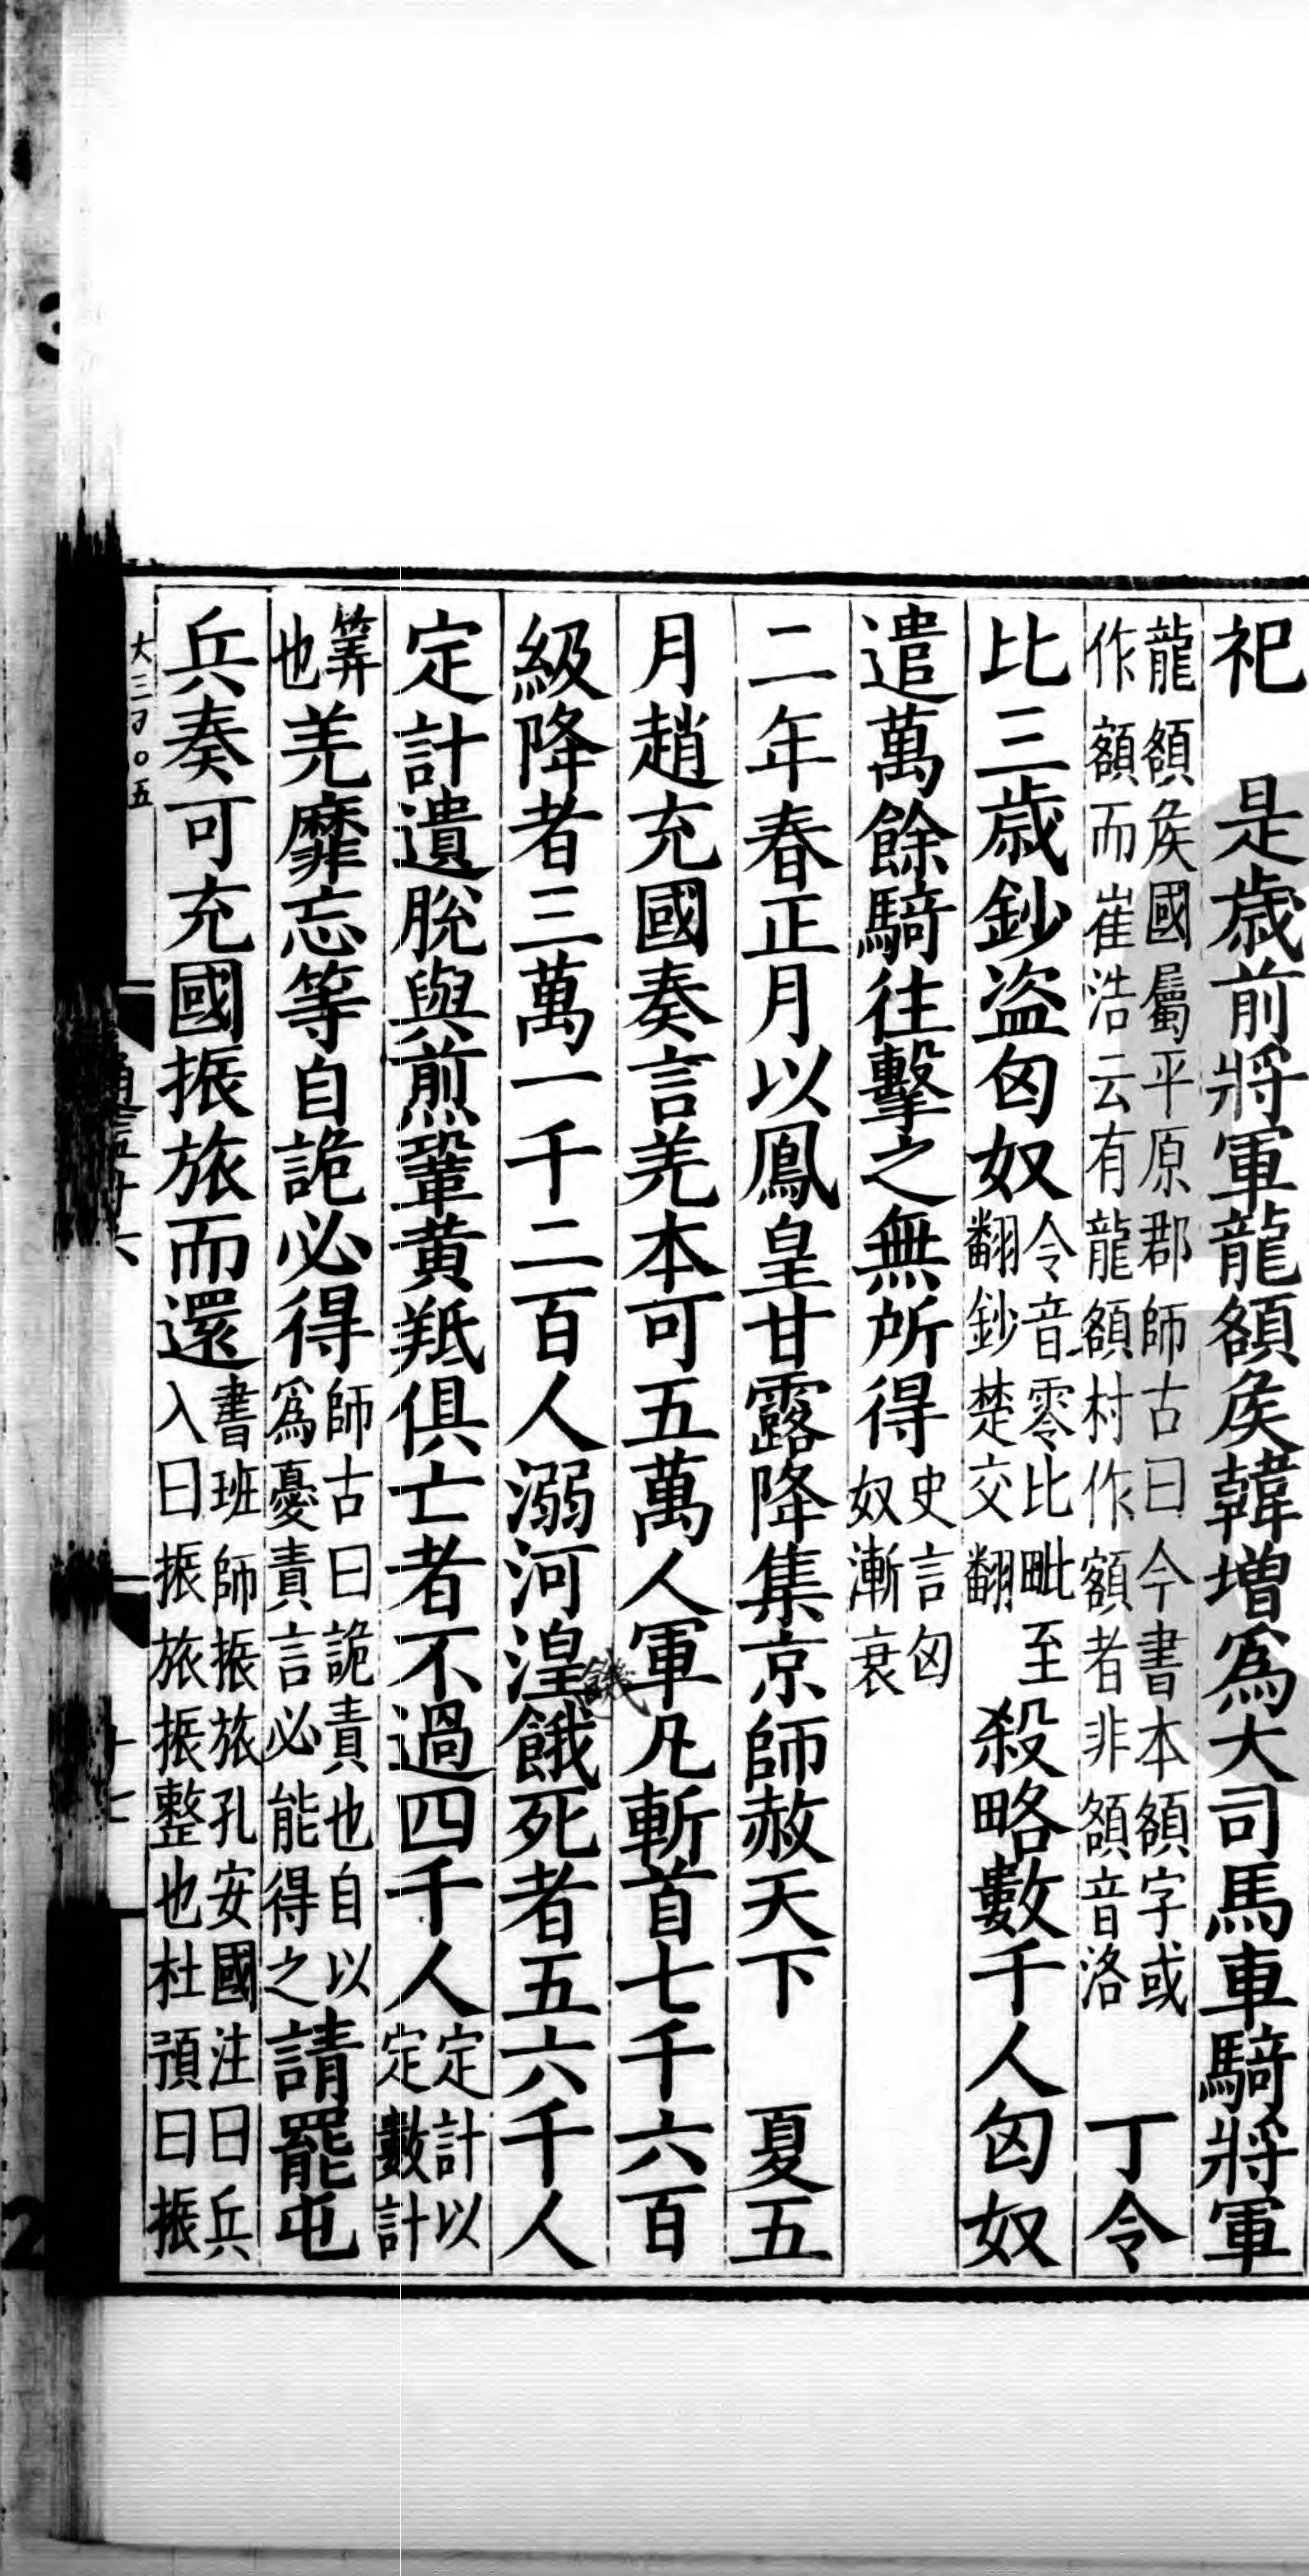 祀　是歳前將軍龍頟矦韓增爲大司馬車騎將軍
龍頟矦國屬平原郡師古曰今書本頟字或
作額而崔浩云有龍頟村作額者非頟音洛
丁令
比三歲鈔盜匈奴
令音零比毗至
翻鈔楚交翻
殺略數千人匈奴
遣萬餘騎往擊之無所得
史言匈
奴漸衰
二年春正月以鳳皇甘露降集京師赦天下　夏五
月趙充國奏言羌本可五萬人軍凡斬首七千六百
級降者三萬一千二百人溺河湟餓死者五六千人
饑
定計遺脫與煎鞏黃羝俱亡者不過四千人
定計以
定數計
筭
也
羌靡忘等自詭必得
師古曰詭責也自以
爲憂責言必能得之
請罷屯
兵奏可充國振旅而還
書班師振旅孔安國注曰兵
入曰振旅振整也杜預曰振